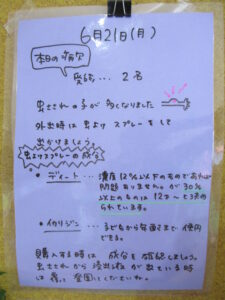 6月21日(月)
本日の病欠
受診... 2名
虫さされの子が多くなりました
外出時は虫よけスプレーをして
出かけましょう。
虫よけスプレーの成分
・ディート… 濃度12%以下のものであれば
問題ありません。が 30%
以上のものは 12才〜と決め
られています。
・イカリジン… 子どもから年配まで 使用
できる。
購入する時は 成分を確認しましょう。
虫さされから浸出液が出ている時
は 覆って登園してくださいね。